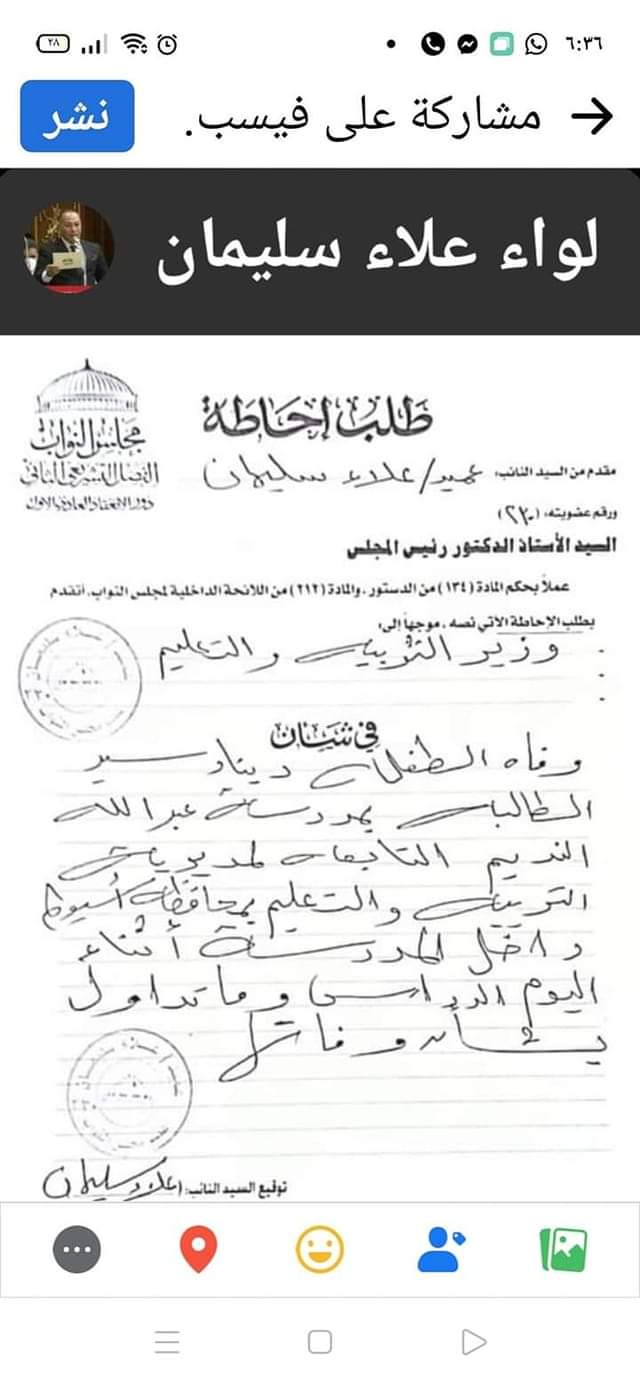 ٢٨
٦:٣٦
مشاركة على فيسب.
نشر
لواء علاء سليمان
مجلس النواب
الفصل التشريعى الثانى
دور الانعقاد العادى الاول
طلب إحاطة
مقدم من السيد النائب، عميد/علاء سليمان
ورقم عضويته: (٢٢٠)
السيد الأستاذ الدكتور رئيس المجلس
عملاً بحكم المادة (١٣٤) من الدستور، والمادة (٢١٢) من اللائحة الداخلية لمجلس النواب، أتقدم
بطلب الإحاطة الآتي نصه، موجهاً إلى:
وزير التربية والتعليم
في شأن
وفاه الطفلة دينا
الطالبة بمدرسة عبد الله
النديم التابعة لمديرية
التربية والتعليم بمحافظة أسيوط
داخل المدرسة أثناء
اليوم الدراسى وما تداول
بشأن وفاتها
توقيع السيد النائب: علاء سليمان